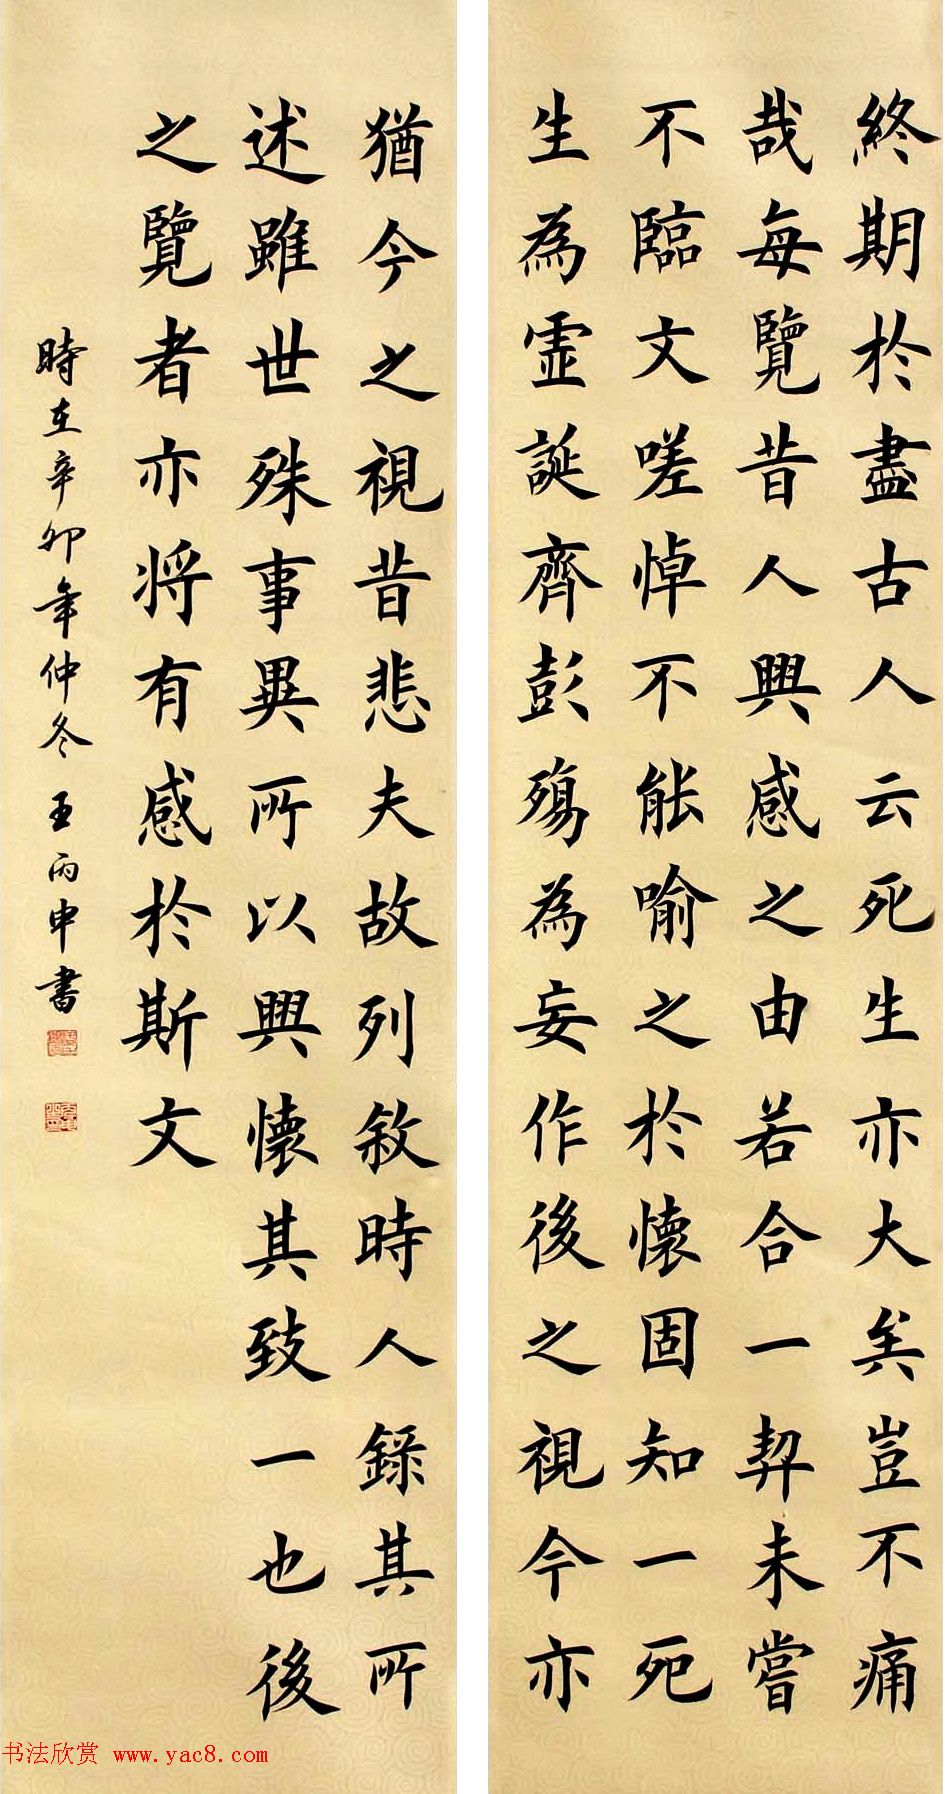 終期於盡古人云死生亦大矣豈不痛
哉每覽昔人興感之由若合一契未嘗
不臨文嗟悼不能喻之於懷固知一死
生為虛誕齊彭殤為妄作後之視今亦
猶今之視昔悲夫故列敘時人錄其所
述雖世殊事異所以興懷其致一也後
之覽者亦將有感於斯文
時在辛卯年仲冬 王丙申書
书法欣赏 www.yac8.com